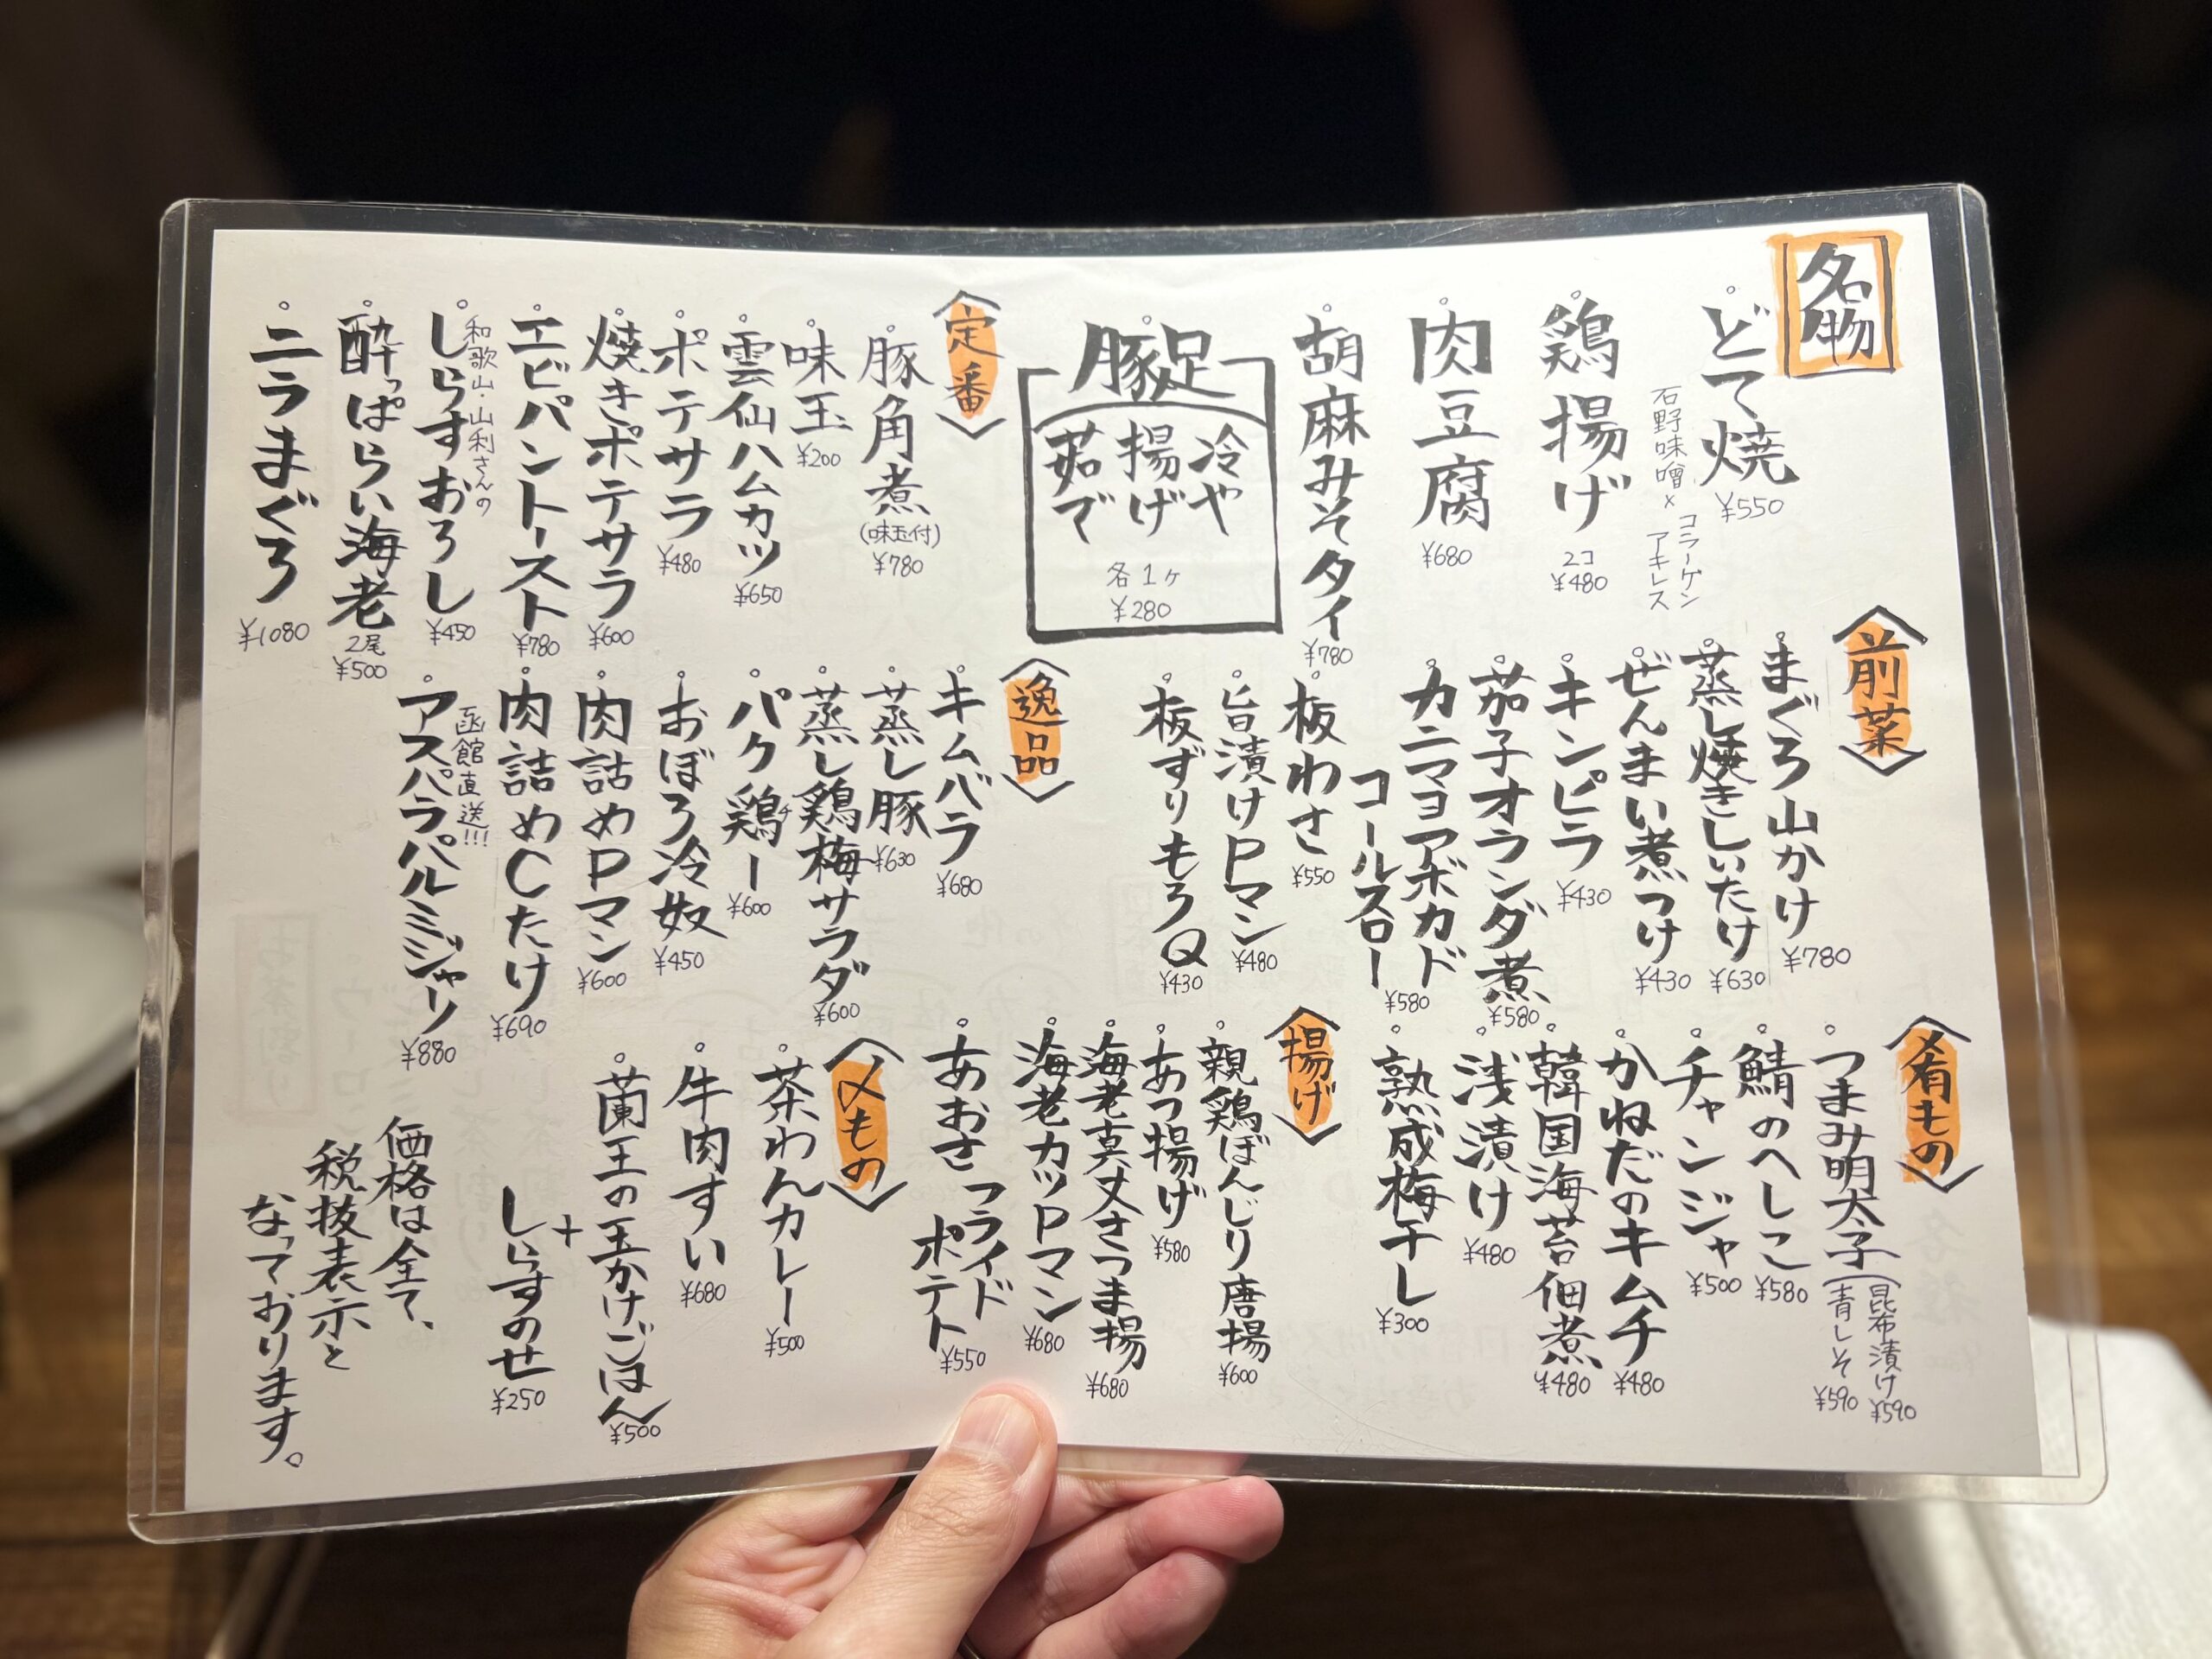 名物
どて焼
¥550
石野味噌×コラーゲンアキレス
鶏揚げ
2コ
¥480
肉豆腐
¥680
胡麻みそタイ
¥780
豚足
冷や
揚げ
茹で
各1ヶ
¥280
定番
豚角煮
(味玉付)
¥780
味玉
¥200
雲仙ハムカツ
¥650
ポテサラ
¥480
焼きポテサラ
¥600
エビパントースト
¥780
和歌山・山利さんの
しらすおろし
¥450
酔っぱらい海老
2尾
¥500
ニラまぐろ
¥1080
前菜
まぐろ山かけ
¥780
蒸し焼きしいたけ
¥630
ぜんまい煮つけ
¥430
キンピラ
¥430
茄子オランダ煮
¥580
カニマヨアボカド
コールスロー
¥580
板わさ
¥550
旨漬けPマン
¥480
板ずりもろQ
¥430
逸品
キムバラ
¥680
蒸し豚
¥630
蒸し鶏梅サラダ
¥600
パク鶏チー
¥600
おぼろ冷奴
¥450
肉詰めPマン
¥600
肉詰めCたけ
¥690
函館直送!!!
アスパラパルミジャリ
¥880
肴もの
つまみ明太子
昆布漬け
¥590
青しそ
¥590
鯖のへしこ
¥580
チャンジャ
¥500
かねだのキムチ
¥480
韓国海苔佃煮
¥480
浅漬け
¥480
熟成梅干し
¥300
揚げ
親鶏ぼんじり唐揚
¥600
あつ揚げ
¥580
海老真丈さつま揚
¥680
海老カツPマン
¥680
あおさフライド
ポテト
¥550
〆もの
茶わんカレー
¥500
牛肉すい
¥680
蘭王の玉かけごはん
¥500
+
しらすのせ
¥250
価格は全て、
税抜表示と
なっております。